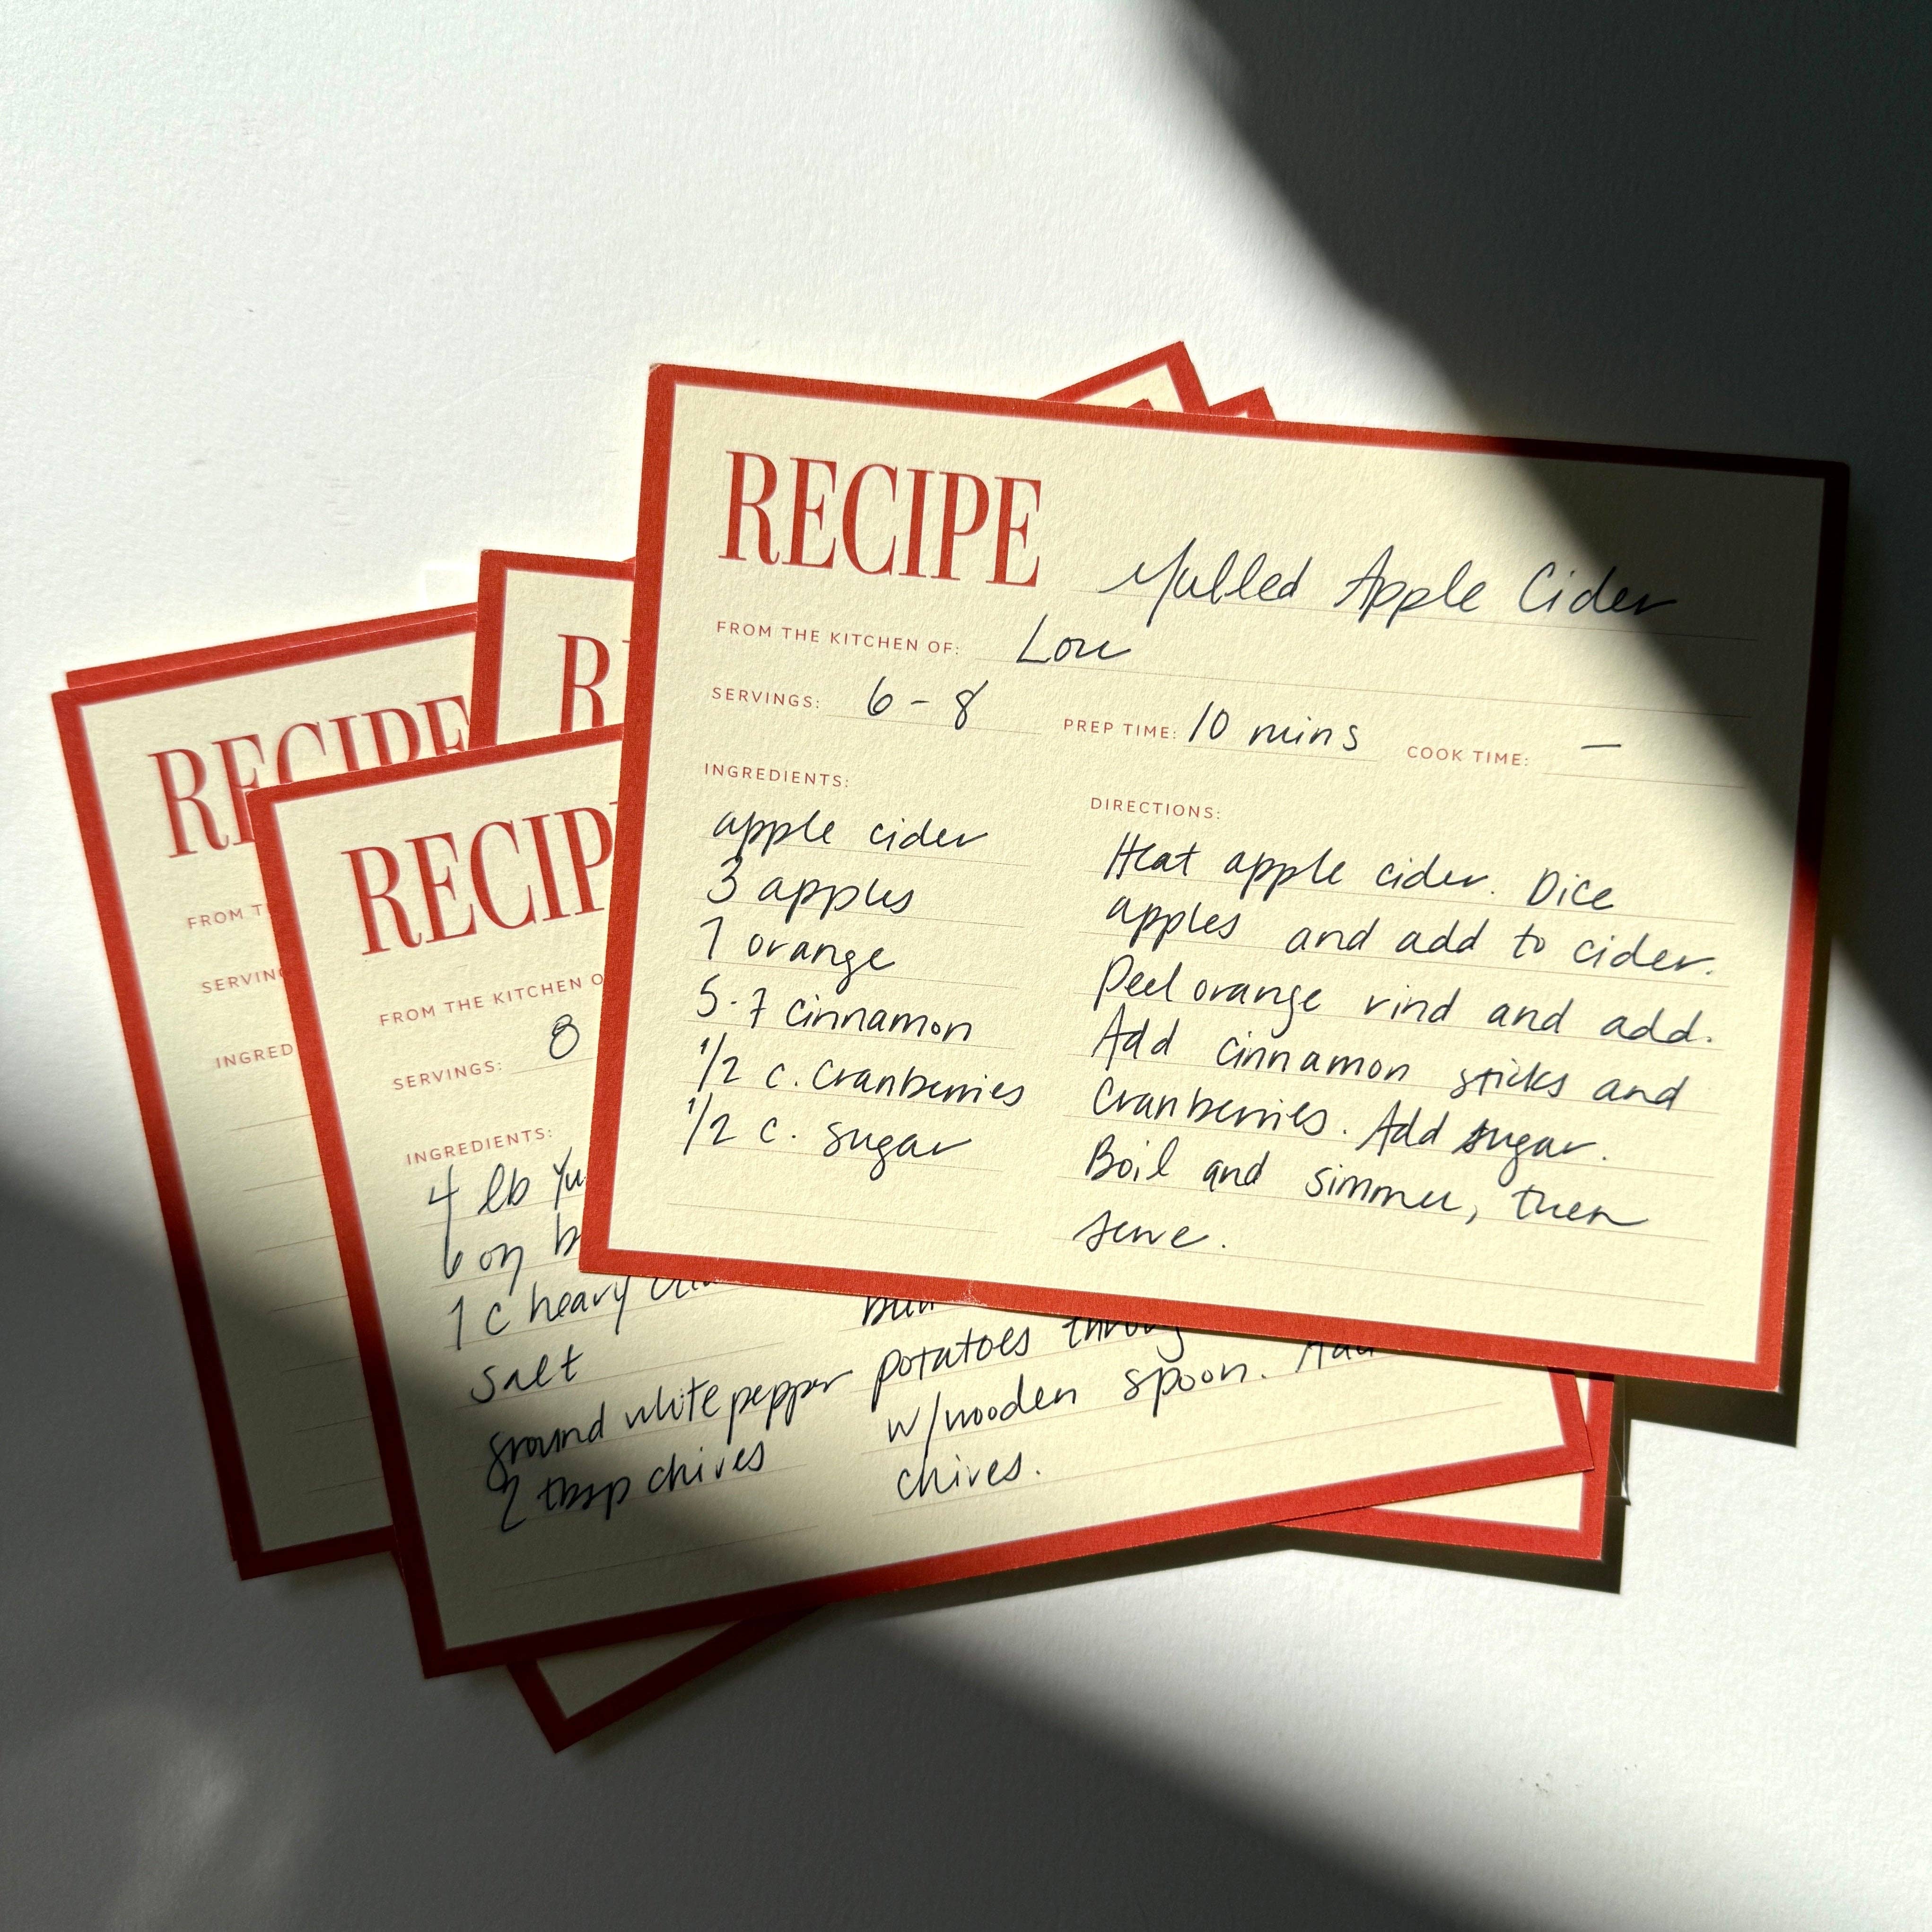 RECIPE Mulled Apple Cider
FROM THE KITCHEN OF: Lou
SERVINGS: 6 - 8 PREP TIME: 10 mins COOK TIME: —
INGREDIENTS:
apple cider
3 apples
1 orange
5-7 cinnamon
1/2 c. cranberries
1/2 c. sugar
DIRECTIONS:
Heat apple cider. Dice
apples and add to cider.
Peel orange rind and add.
Add cinnamon sticks and
cranberries. Add sugar.
Boil and simmer, then
serve.
RECIP
FROM THE KITCHEN O
SERVINGS: 8
INGREDIENTS:
4 lb Yu
6 oz b
1 c heavy
salt
ground white pepper
2 tbsp chives
potatoes
w/wooden spoon. Add
chives.
RECIPE
FROM T
SERVING
INGRED
R